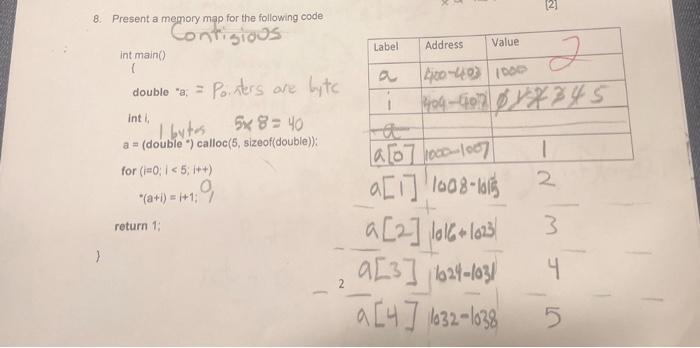 [2]
8. Present a memory map for the following code
Contigious
int main()
{
double *a; = Pointers are byte
int i,
1 bytes 5x8=40
a = (double *) calloc(5, sizeof(double));
for (i=0; i < 5; i++)
*(a+i) = i+1;
return 1;
}
Label Address Value
2
a 400-403 1000
i 404-407 0 1 2 3 4 5
a
a[0] 1000-1007 1
a[1] 1008-1015 2
a[2] 1016-1023 3
a[3] 1024-1031 4
a[4] 1032-1038 5
2